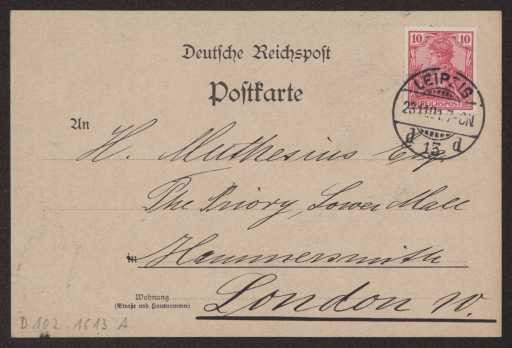 Deutsche Reichspost
Postkarte
10 10
REICHSPOST
LEIPZIG
13
d d
An
H. Muthesius Esq
The Priory, Lower Mall
in Hammersmith
Wohnung
(Straße und Hausnummer)
London W.
D 102 - 1613 A